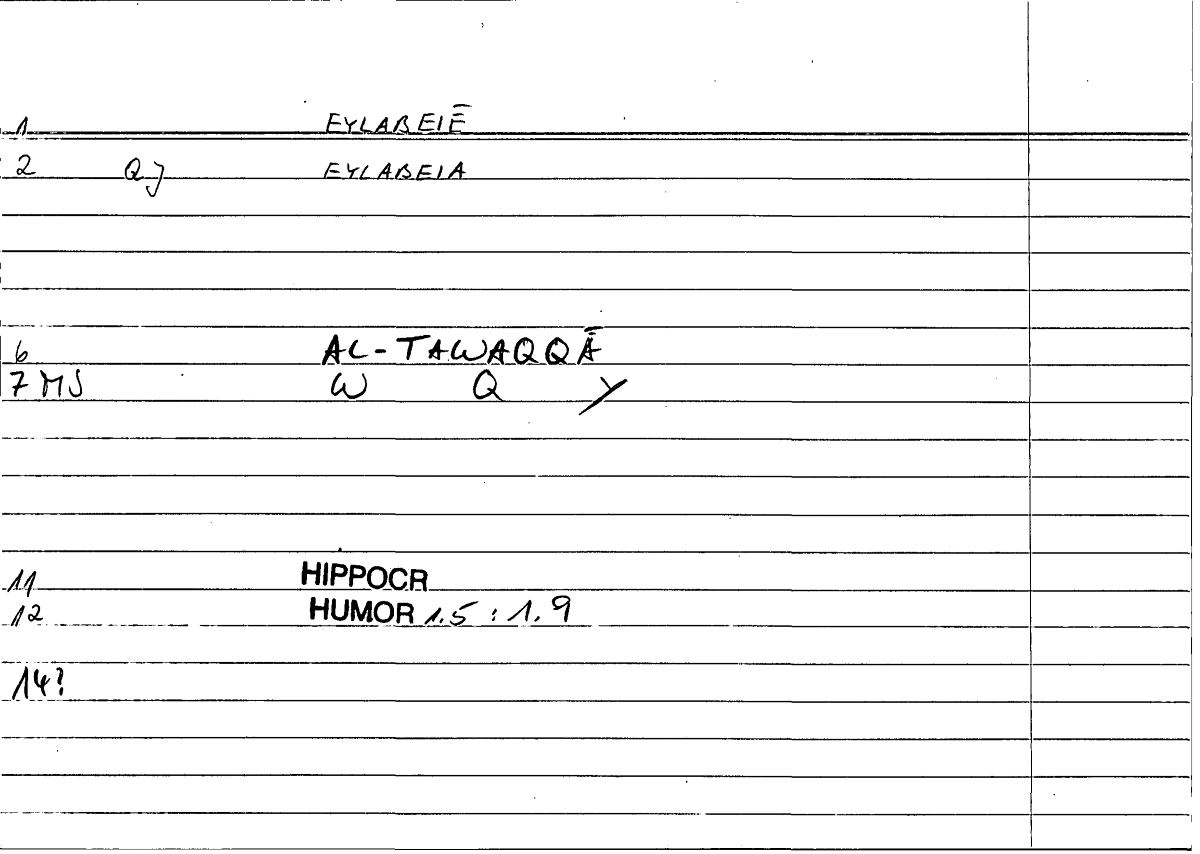 1 EYLABEIĒ
2 QJ EYLABEIA
6 AL-TAWAQQĀ
7 MS W Q Y
11 HIPPOCR
12 HUMOR 1.5 : 1.9
14?